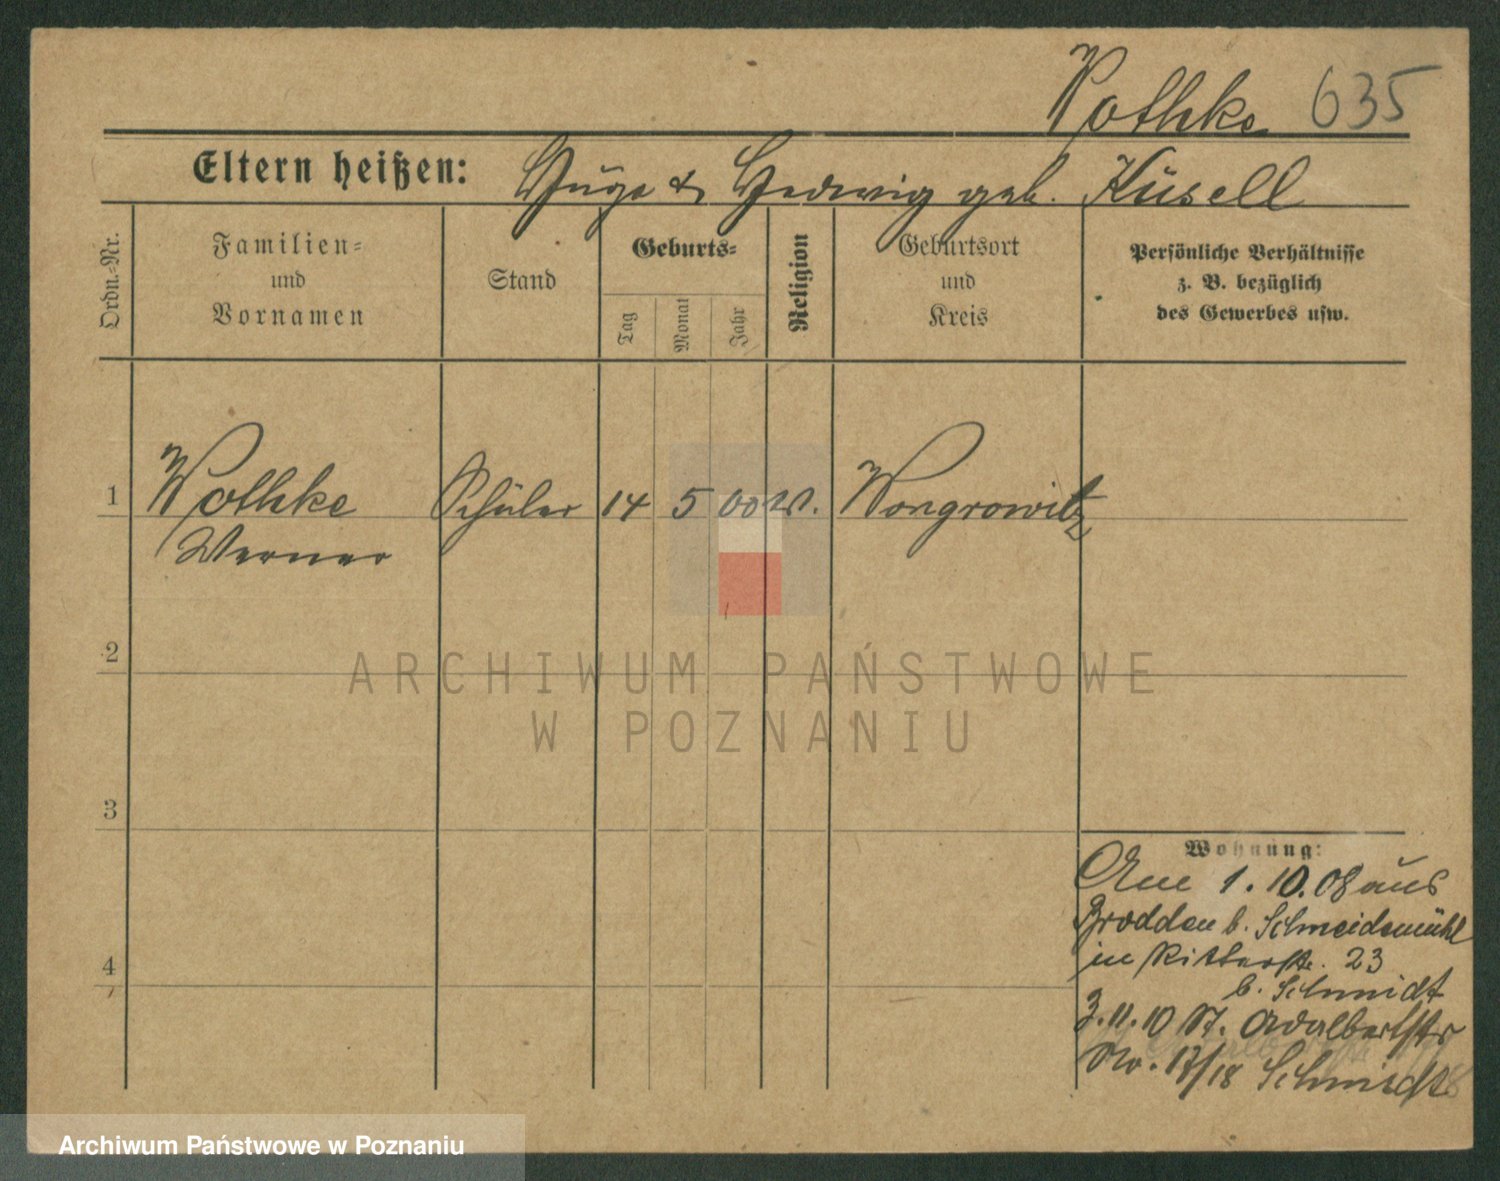 Wothke 635
Eltern heißen: Hugo & Hedwig geb. Küsell
Ordn.-Nr.
Familien-
und
Vornamen
Stand
Geburts-
Tag
Monat
Jahr
Religion
Geburtsort
und
Kreis
Persönliche Verhältnisse
z. B. bezüglich
des Gewerbes usw.
1 Wothke Schüler 14 5 00 Wongrowitz
Werner
2
3
4
Wohnung:
Am 1.10.08 aus
Brodden b. Schneidemühl
in Ritterstr. 23
b. Schmidt
3.11.10 St. Adalbertstr
No. 17/18 Schmidt
ARCHIWUM PAŃSTWOWE
W POZNANIU
Archiwum Państwowe w Poznaniu